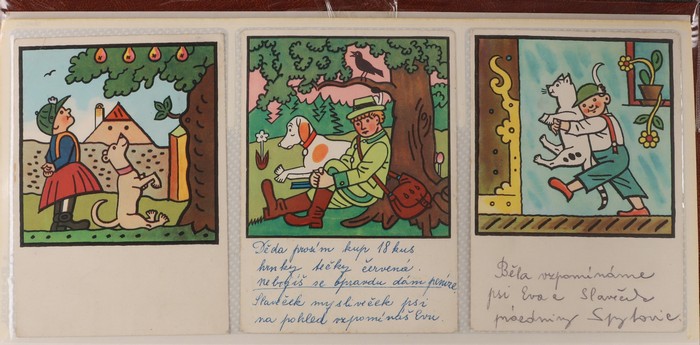 Děda prosím kup 18 kus
hrnky tečky červená.
neboj se opravdu dám peníze
Slaveček mysliveček psí
na pohled vzpomínáš Evu.
Běla vzpomínáme
psi Eva e Slavček
prázdniny Spytovic.